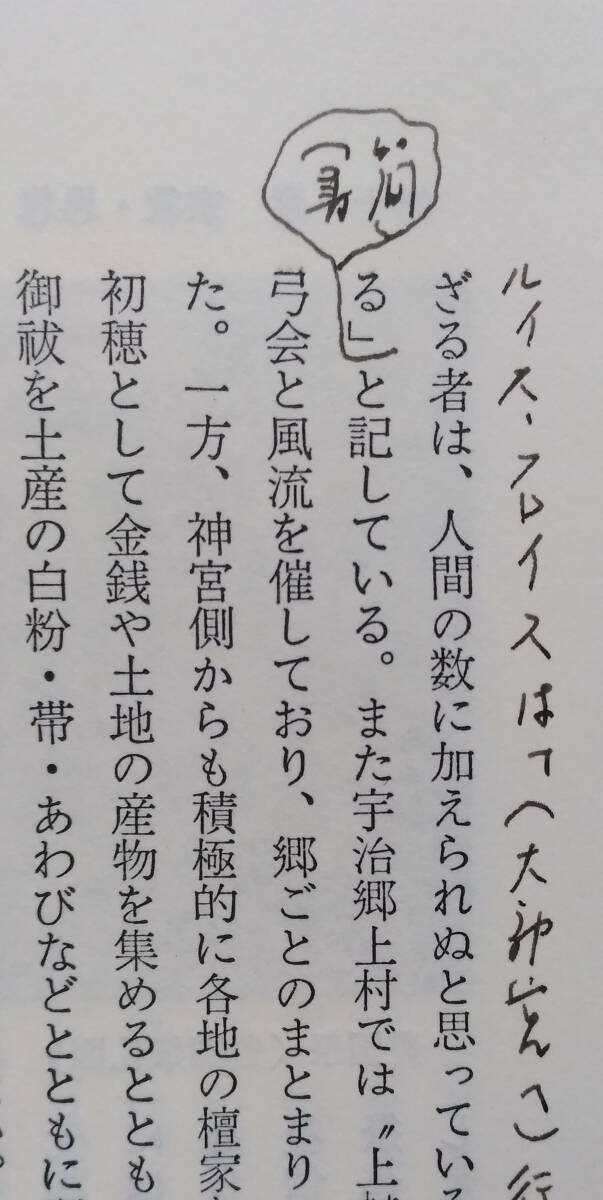 ルイス・フロイスは「(大神宮へ)行
ざる者は、人間の数に加えられぬと思ってい
る」と記している。また宇治郷上村では〃上
弓会と風流を催しており、郷ごとのまとまり
た。一方、神宮側からも積極的に各地の檀家
初穂として金銭や土地の産物を集めるととも
御祓を土産の白粉・帯・あわびなどとともに